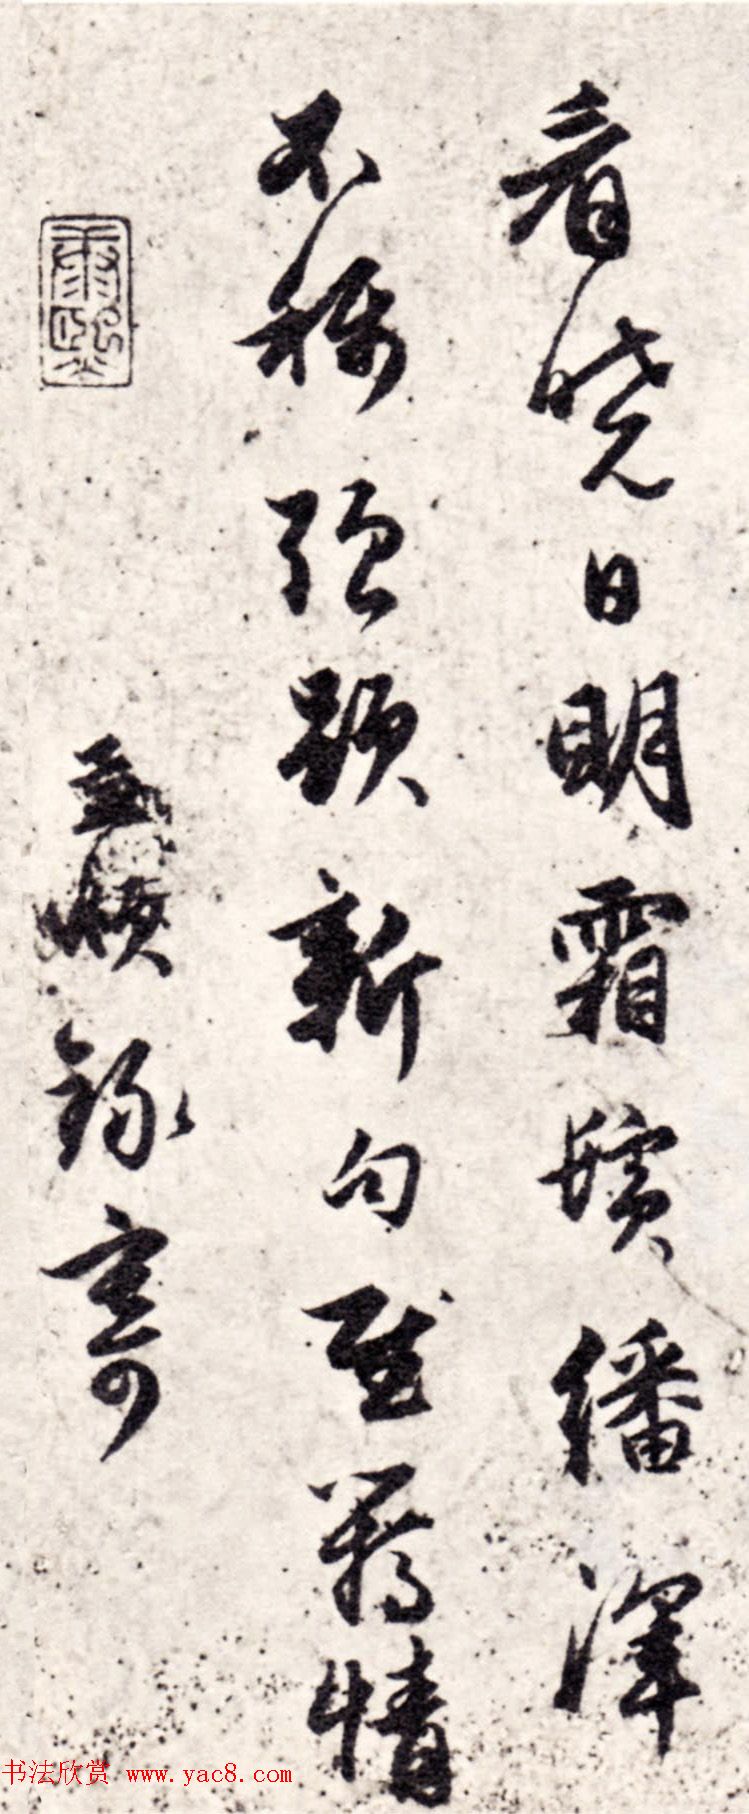 看晓日明霜鬓繙浑
不称强题新句慰
情
录寄
书法欣赏 www.yac8.com